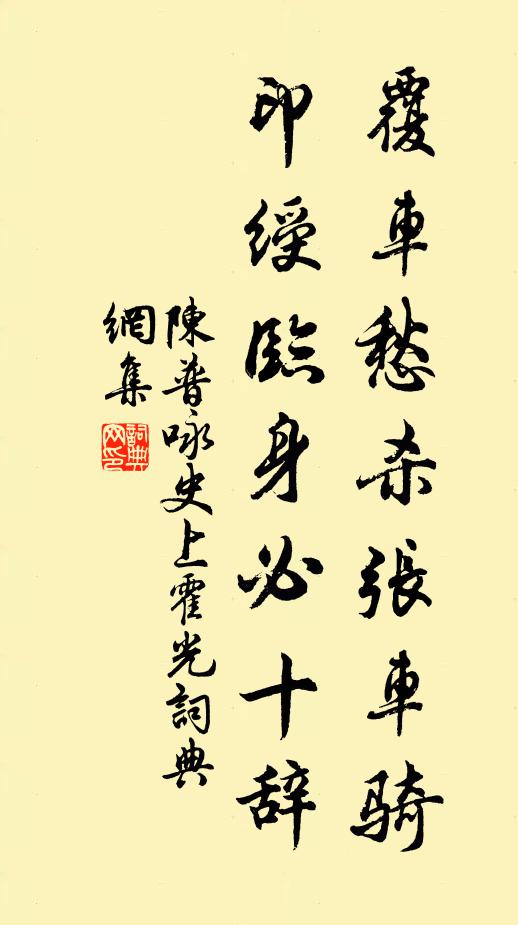 覆車愁杀張車骑
印綬臨身必十辞
陳普咏史上霍光詞典
網集
詞典網印